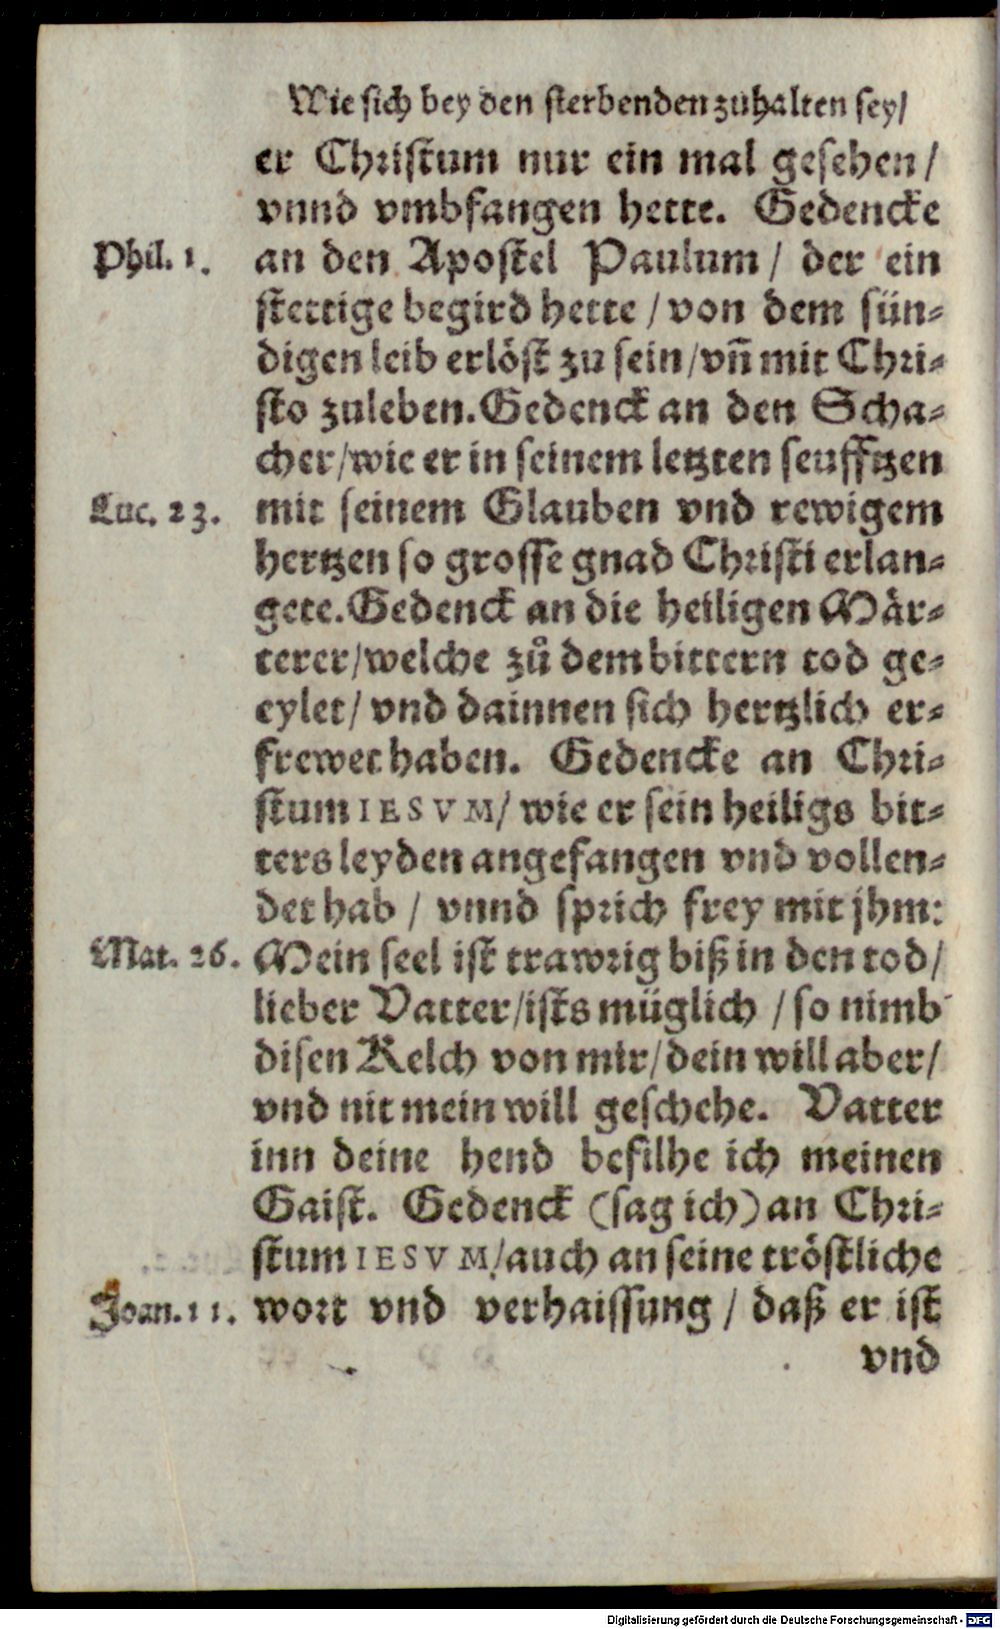 Wie sich bey den sterbenden zuhalten sey/
er Christum nur ein mal gesehen/
vnnd vmbfangen hette. Gedencke
Phil. 1. an den Apostel Paulum/ der ein
stettige begird hette/ von dem sün-
digen leib erlöst zu sein/ vñ mit Chri-
sto zuleben. Gedenck an den Scha-
cher/ wie er in seinem letzten seufftzen
Luc. 23. mit seinem Glauben vnd rewigem
hertzen so grosse gnad Christi erlan-
gete. Gedenck an die heiligen Mär-
terer/ welche zů dem bittern tod ge-
eylet/ vnd dainnen sich hertzlich er-
frewet haben. Gedencke an Chri-
stum IESVM/ wie er sein heiligs bit-
ters leyden angefangen vnd vollen-
det hab/ vnnd sprich frey mit jhm:
Mat. 26. Mein seel ist trawrig biß in den tod/
lieber Vatter/ ists müglich/ so nimb
disen Kelch von mir/ dein will aber/
vnd nit mein will geschehe. Vatter
inn deine hend befilhe ich meinen
Gaist. Gedenck (sag ich) an Chri-
stum IESVM/ auch an seine tröstliche
Joan. 11. wort vnd verhaissung/ daß er ist
vnd
Digitalisierung gefördert durch die Deutsche Forschungsgemeinschaft - DFG